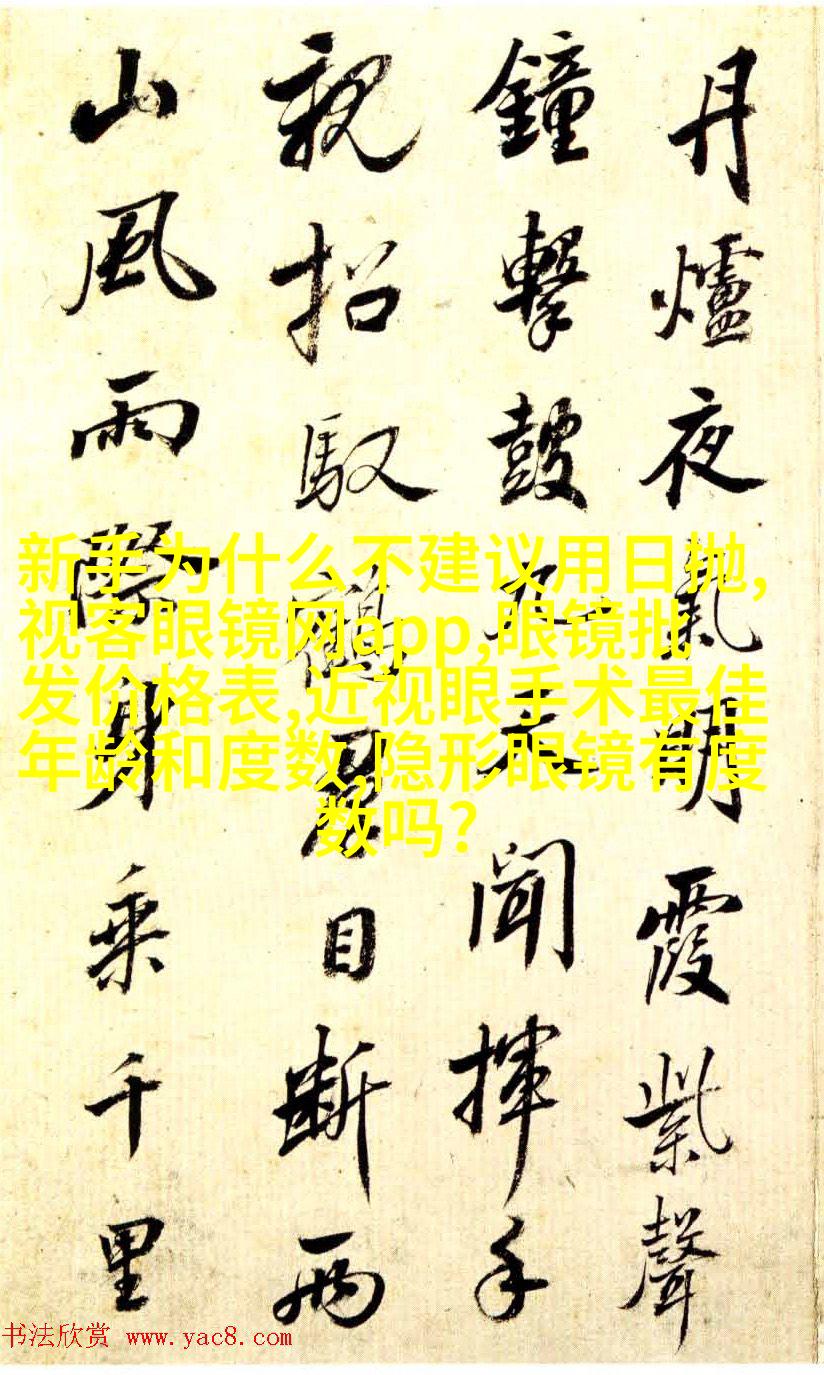 丹爐夜氣明霞紫聲
鐘擊鼓聞揮手
親招馭鶴目斷兩
山風雨身乘千里
新手为什么不建议用日抛,
视客眼镜网app,眼镜批
发价格表,近视眼手术最佳
年龄和度数,隐形眼镜有度
数吗?
书法欣赏 www.yac8.com